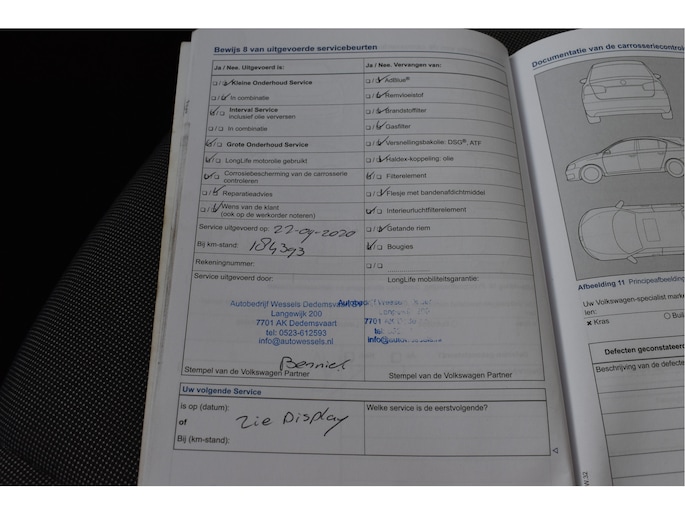 Bewijs 8 van uitgevoerde servicebeurten
Ja / Nee. Uitgevoerd is:
Kleine Onderhoud Service
In combinatie
Interval Service
inclusief olie verversen
In combinatie
Grote Onderhoud Service
LongLife motorolie gebruikt
Corrosiebescherming van de carrosserie
controleren
Reparatieadvies
Wens van de klant
(ook op de werkorder noteren)
Service uitgevoerd op: 22-09-2020
Bij km-stand: 184393
Rekeningnummer:
Service uitgevoerd door:
Autobedrijf Wessels Dedemsvaart BV
Langewijk 200
7701 AK Dedemsvaart
tel: 0523-612593
info@autowessels.nl
Stempel van de Volkswagen Partner
Ja / Nee. Vervangen van:
AdBlue®
Remvloeistof
Brandstoffilter
Gasfilter
Versnellingsbakolie: DSG®, ATF
Haldex-koppeling: olie
Filterelement
Flesje met bandenafdichtmiddel
Interieurluchtfilterelement
Getande riem
Bougies
LongLife mobiliteitsgarantie:
Stempel van de Volkswagen Partner
Uw volgende Service
is op (datum):
of
zie Display
Bij (km-stand):
Welke service is de eerstvolgende?
Documentatie van de carrosseriecontrol
Afbeelding 11 Principeafbeelding
Uw Volkswagen-specialist mark
len:
× Kras
Defecten geconstateerd
Beschrijving van de defecte